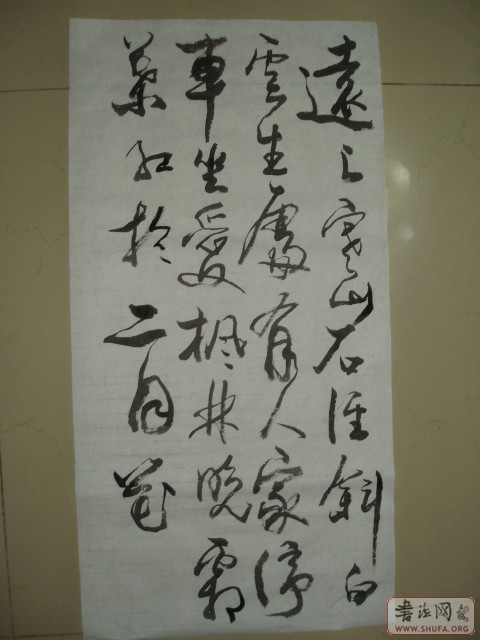 遠上寒山石徑斜白
雲生處有人家停
車坐愛楓林晚霜
葉紅於二月花
書法网
WWW.SHUFA.ORG